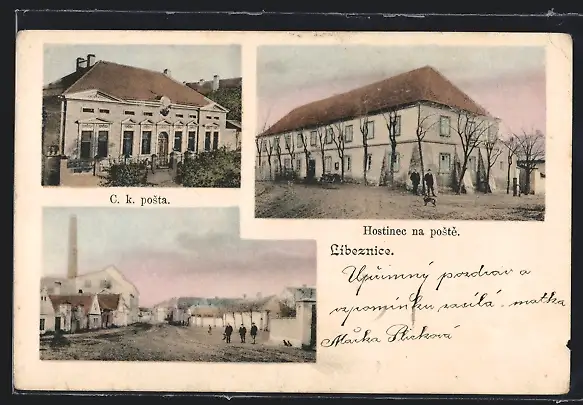 C. k. pošta.
Hostinec na poště.
Líbeznice.
Upřímný pozdrav a
vzpomínku zasílá matka